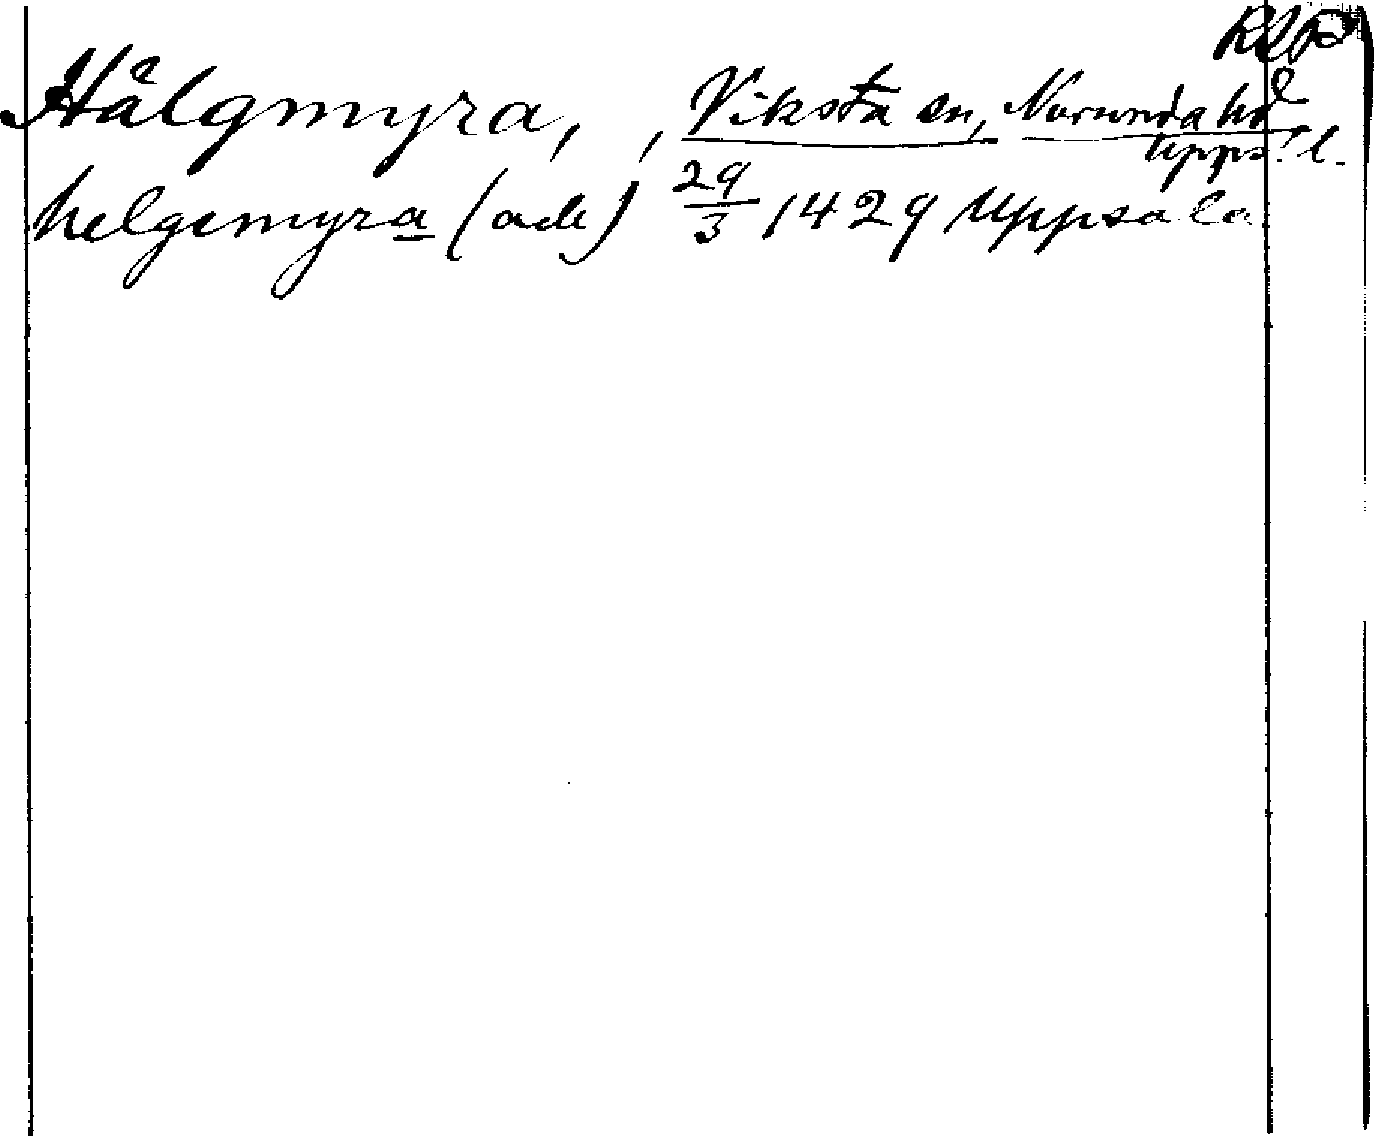 RAP
Hälgmyra, , Viksta sn, Norunda hd
Upps. l.
helgemyra (ack) 29/3 1429 Uppsala